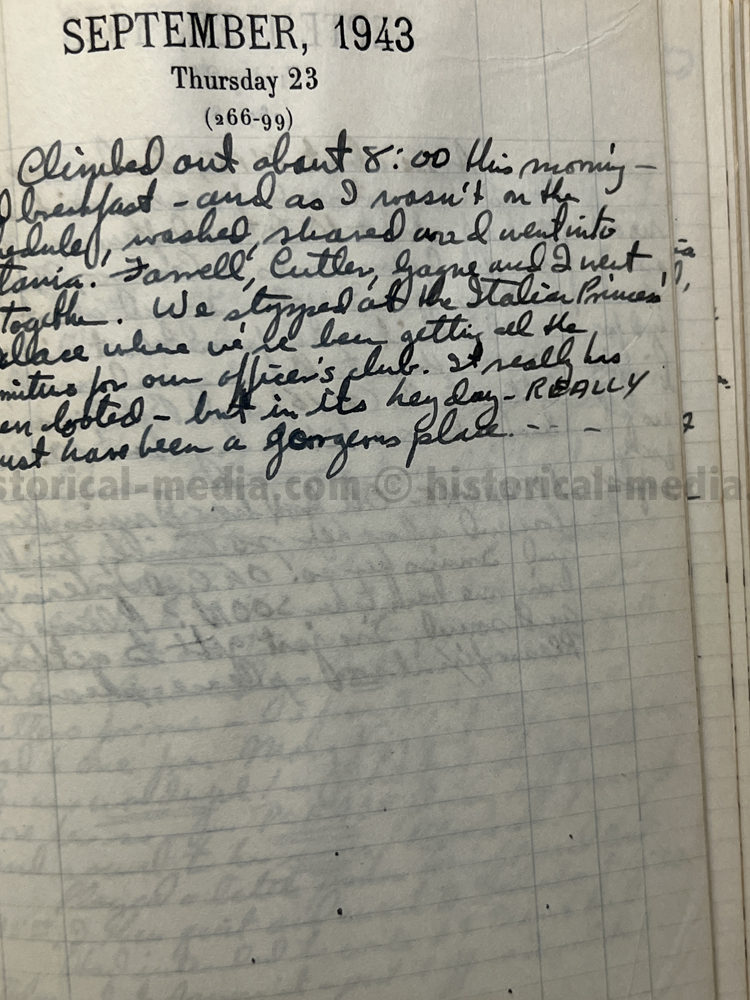 SEPTEMBER, 1943
Thursday 23
(266-99)
Climbed out about 8:00 this morning -
breakfast - and as I wasn't on the
hedule, washed, shaved and went into
tania. Farrell, Cutler, Gagne and I went
together. We stopped at the Italian Princes'
allace where we've been getting all the
niture for our officer's club. It really has
en looted - but in its heyday - REALLY
ust have been a gorgeous place. - - -
storical-media.com © historical-media